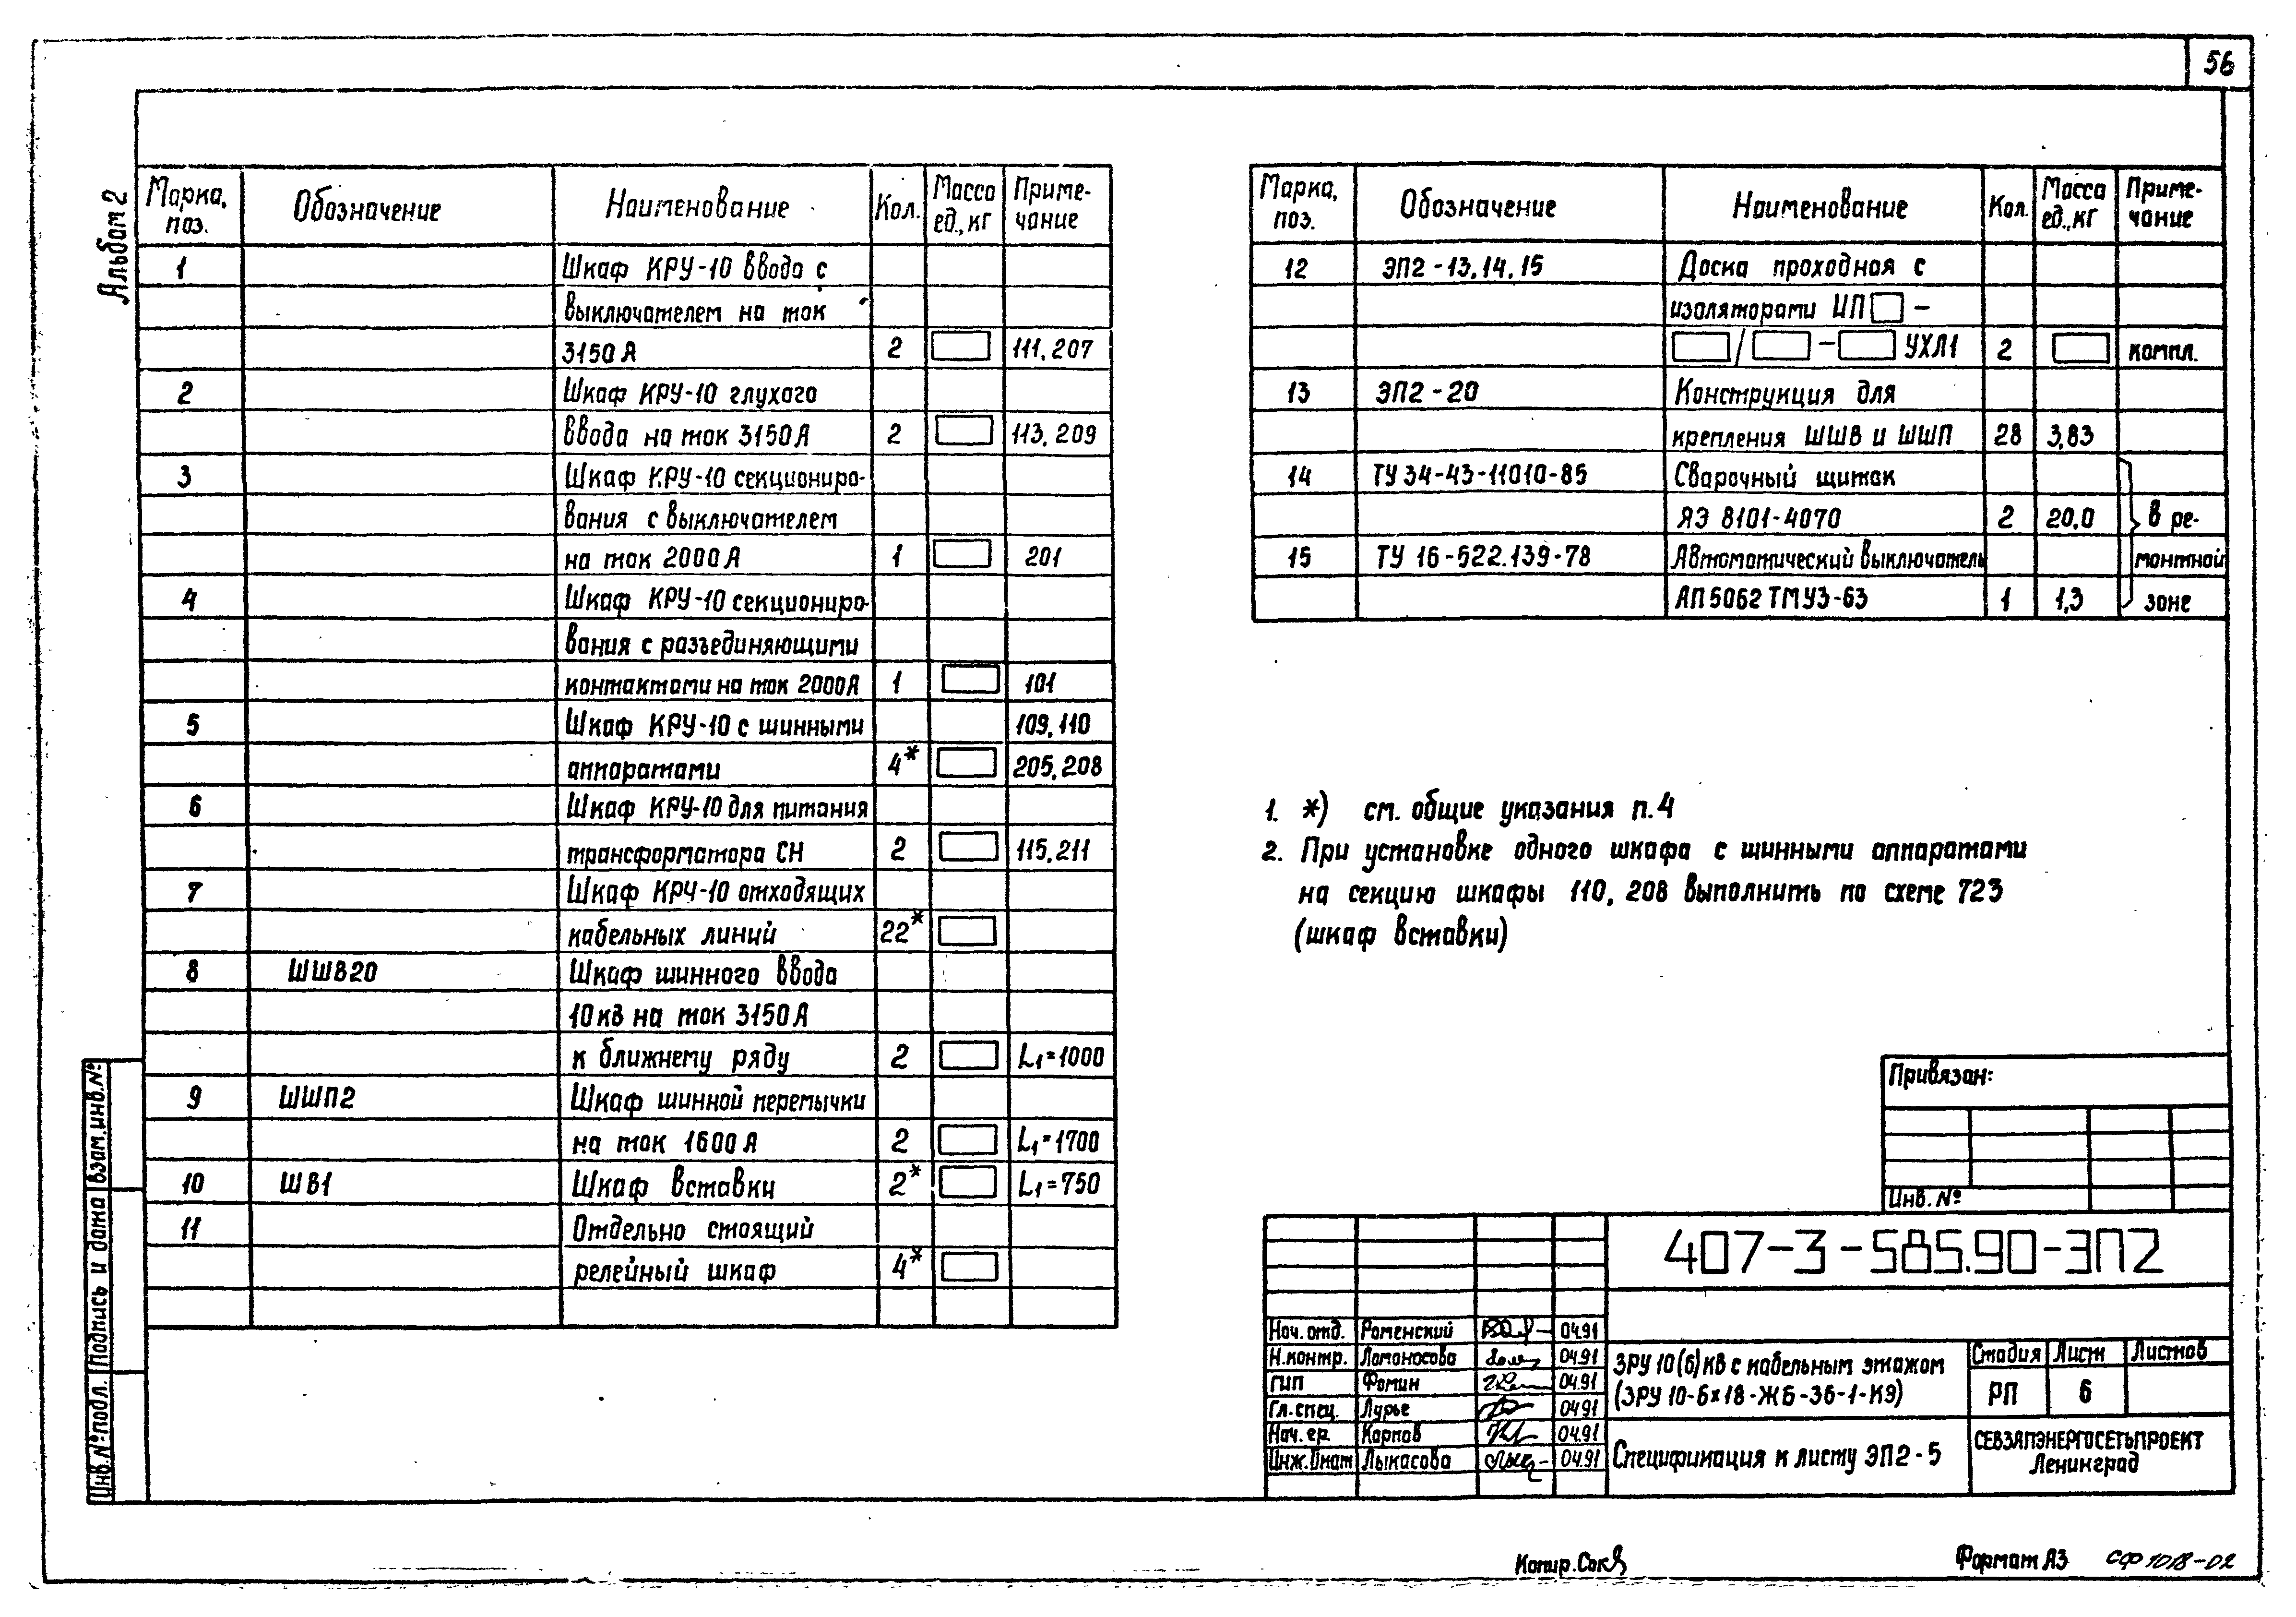 56
Альбом 2
Марка, поз. Обозначение Наименование Кол. Масса ед., кг Примечание
1 Шкаф КРУ-10 ввода с
выключателем на ток
3150 А 2 111, 207
2 Шкаф КРУ-10 глухого
ввода на ток 3150 А 2 113, 209
3 Шкаф КРУ-10 секциониро-
вания с выключателем
на ток 2000 А 1 201
4 Шкаф КРУ-10 секциониро-
вания с разъединяющими
контактами на ток 2000 А 1 101
5 Шкаф КРУ-10 с шинными 109, 110
аппаратами 4* 205, 208
6 Шкаф КРУ-10 для питания
трансформатора СН 2 115, 211
7 Шкаф КРУ-10 отходящих
кабельных линий 22*
8 ШШВ20 Шкаф шинного ввода
10 кв на ток 3150 А
к ближнему ряду 2 L1=1000
9 ШШП2 Шкаф шинной перемычки
на ток 1600 А 2 L1=1700
10 ШВ1 Шкаф вставки 2* L1=750
11 Отдельно стоящий
релейный шкаф 4*
Марка, поз. Обозначение Наименование Кол. Масса ед., кг Примечание
12 ЭП2-13, 14, 15 Доска проходная с
изоляторами ИП □ -
□/□-□ УХЛ1 2 компл.
13 ЭП2-20 Конструкция для
крепления ШШВ и ШШП 28 3,83
14 ТУ 34-43-11010-85 Сварочный щиток
ЯЭ 8101-4070 2 20,0 в ре-
15 ТУ 16-522.139-78 Автоматический выключатель монтной
АП5062ТМУ3-63 1 1,3 зоне
1. *) см. общие указания п. 4
2. При установке одного шкафа с шинными аппаратами
на секцию шкафы 110, 208 выполнить по схеме 723
(шкаф вставки)
Привязан:
Инв. №
407-3-585.90-ЭП2
Нач. отд. Роменский 04.91
Н.контр. Ломоносова 04.91
ГИП Фомин 04.91
Гл. спец. Лурье 04.91
Нач. гр. Карпов 04.91
Инж. Iкат Лыкасова 04.91
ЗРУ 10(6) кв с кабельным этажом
(ЗРУ 10-6×18-ЖБ-36-1-КЭ)
Стадия Лист Листов
РП 6
Спецификация к листу ЭП2-5
СЕВЗАПЭНЕРГОСЕТЬПРОЕКТ
Ленинград
Инв. № подл. Подпись и дата Взам. инв. №
Копир. Сок
Формат А3 СФ 1018-02